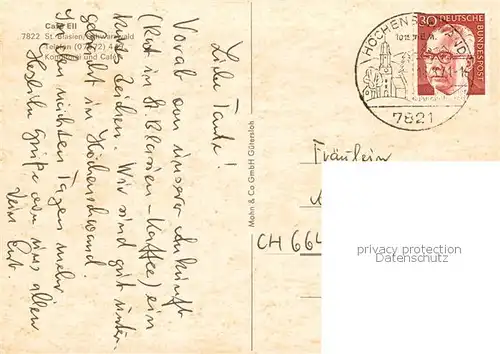 Café Ell
7822 St. Blasien/Schwarzwald
Telefon (07672) 4
Konditorei und Café
Liebe Tante!
Vorab von unserer Ankunft
(Rast in St. Blasien - Kaffee) ein
kurzes Zeichen. Wir sind gut unter-
gebracht in Höchenschwand.
In den nächsten Tagen mehr.
Herzliche Grüße von uns allen
Dein
Mohn & Co GmbH Gütersloh
HÖCHENSCHWAND
1015 m ü.M.
7821
30
DEUTSCHE
BUNDESPOST
Fräulein
CH 664
privacy protection
Datenschutz